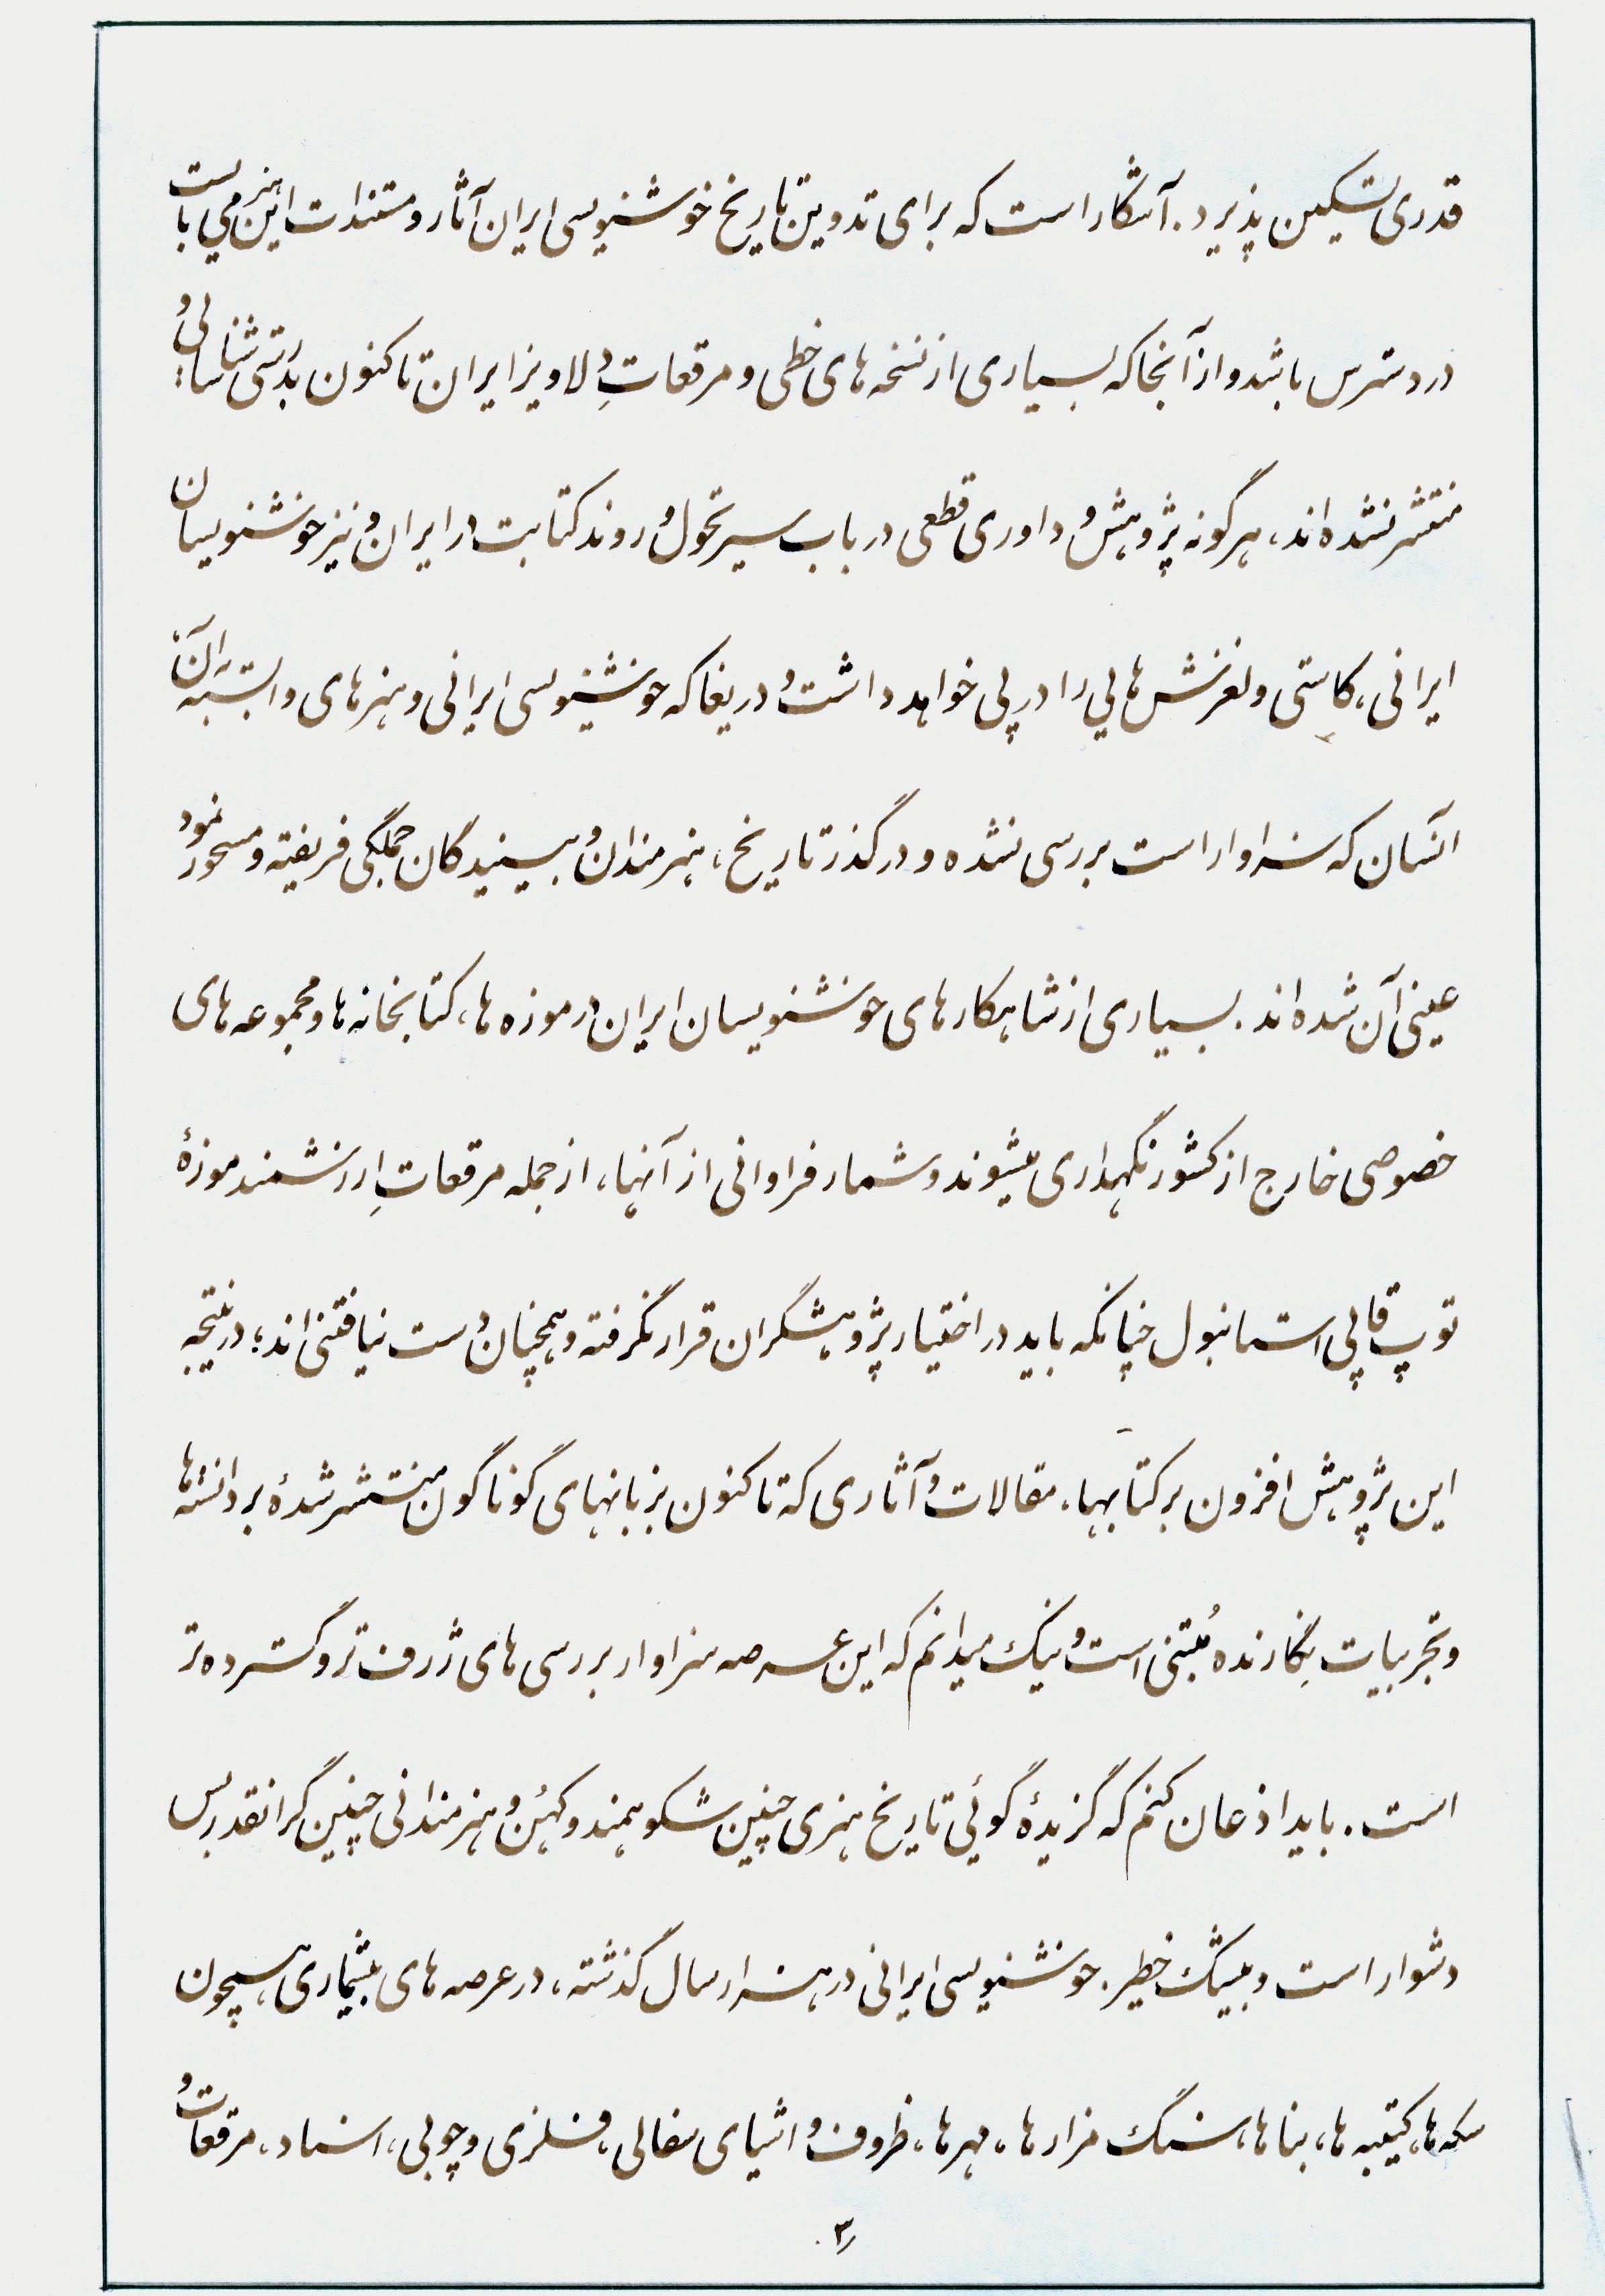 قدری تسکین پذیرد. آشکار است که برای تدوین تاریخ خوشنویسی ایران آثار و مستندات این هنر می بایست
در دسترس باشد و از آنجا که بسیاری از نسخه های خطی و مرقعاتِ دلاویز ایران تا کنون بدرستی شناسائی و
منتشر نشده اند، هر گونه پژوهش و داوری قطعی در باب سیر تحول و روند کتابت در ایران و نیز خوشنویسان
ایرانی، کاستی و لغزش هایی را در پی خواهد داشت و دریغا که خوشنویسی ایرانی و هنرهای وابسته به آن،
آنسان که سزاوار است بررسی نشده و در گذر تاریخ، هنرمندان و بینندگان جملگی فریفته و مسحور نمود
عینی آن شده اند. بسیاری از شاهکارهای خوشنویسان ایران در موزه ها، کتابخانه ها و مجموعه های
خصوصی خارج از کشور نگهداری میشوند و شمار فراوانی از آنها، از جمله مرقعاتِ ارزشمند موزۀ
توپ قاپی استانبول چنانکه باید در اختیار پژوهشگران قرار نگرفته و همچنان دست نیافتنی اند؛ در نتیجه
این پژوهش افزون بر کتابها، مقالات و آثاری که تا کنون بزبانهای گوناگون منتشر شده بر دانسته ها
و تجربیات نگارنده مُبتنی است و نیک میدانم که این عرصه سزاوار بررسی های ژرف تر و گسترده تر
است. باید اذعان کنم که گزیدۀ گوئی تاریخ هنری چنین شکوهمند و کهن و هنرمندانی چنین گرانقدر بس
دشوار است و بیشک خطیر. خوشنویسی ایرانی در هزار سال گذشته، در عرصه های بیشماری همچون
سکه ها، کتیبه ها، بناها، سنگ مزارها، مهرها، ظروف و اشیای سفالی، فلزی و چوبی، اسناد، مرقعات و
۳